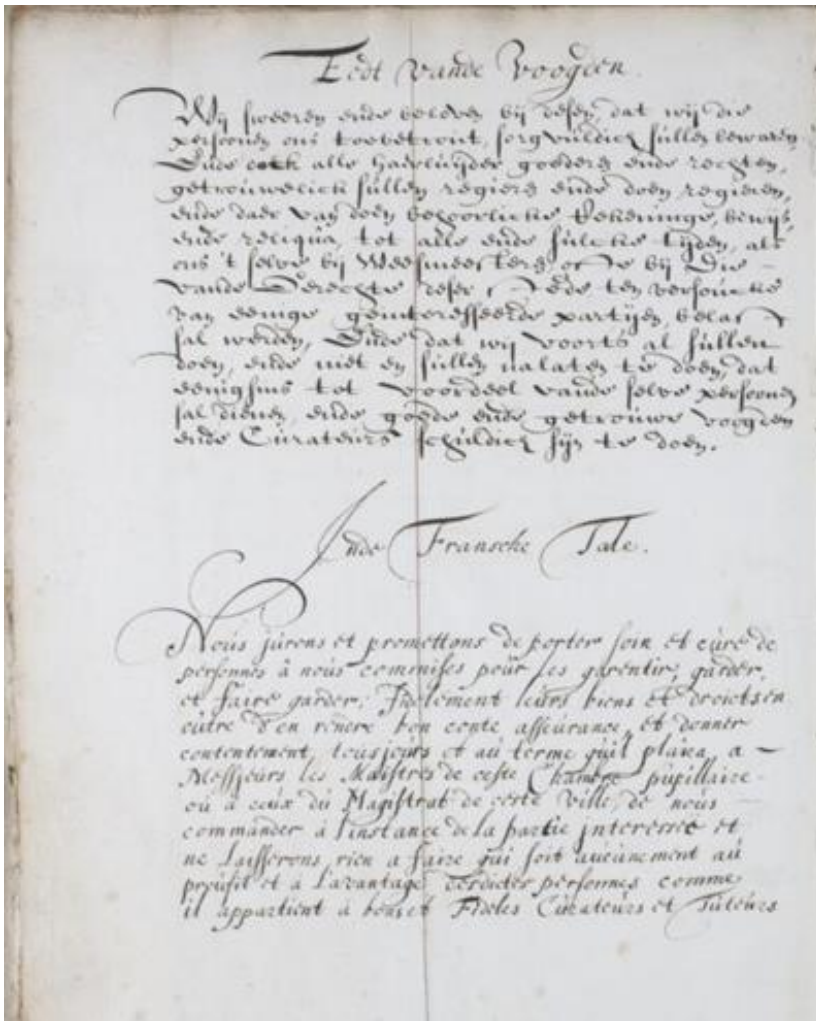 Eedt vande Vooghden
Wij sweeren ende beloven bij desen, dat wij die
persoonen ons toebetrout, sorgvuldich sullen bewaren,
Ende oock alle haerluijder goederen ende rechten,
getrouwelick sullen regieren ende doen regieren,
ende daer van doen behoorlicke Rekeninge, bewijs,
ende reliqua, tot alle ende sulcke tijden, als
ons 't selve bij Weesmeesters, ofte bij Die
vande Gerechte deser Stede, ten versoucke
van eenige geinteresseerde partijen, belast
sal werden, Ende dat wij voorts al sullen
doen, ende niet en sullen nalaten te doen, dat
eenighsins tot voordeel vande selve persoonen
sal dienen, ende goede ende getrouwe vooghden
ende Curateurs schuldich sijn te doen.
Inde Fransche Tale.
Nous jurons et promettons de porter soin et cure de
personnes à nous commises pour les garentir, garder,
et faire garder, fidelement leurs biens et droicts en
outre d'en rendre bon conte asseurance, et donner
contentement, tousjours et au terme quil plaira, a
Messieurs les Maistres de ceste Chambre pupillaire
où à ceux du Magistrat de ceste Ville, de nous
commander à l'instance de la partie interessee et
ne laisserons rien a faire qui soit aucunement au
proufit et à l'avantage desdictes personnes comme
il appartient à bons et Fideles Curateurs et Tuteurs